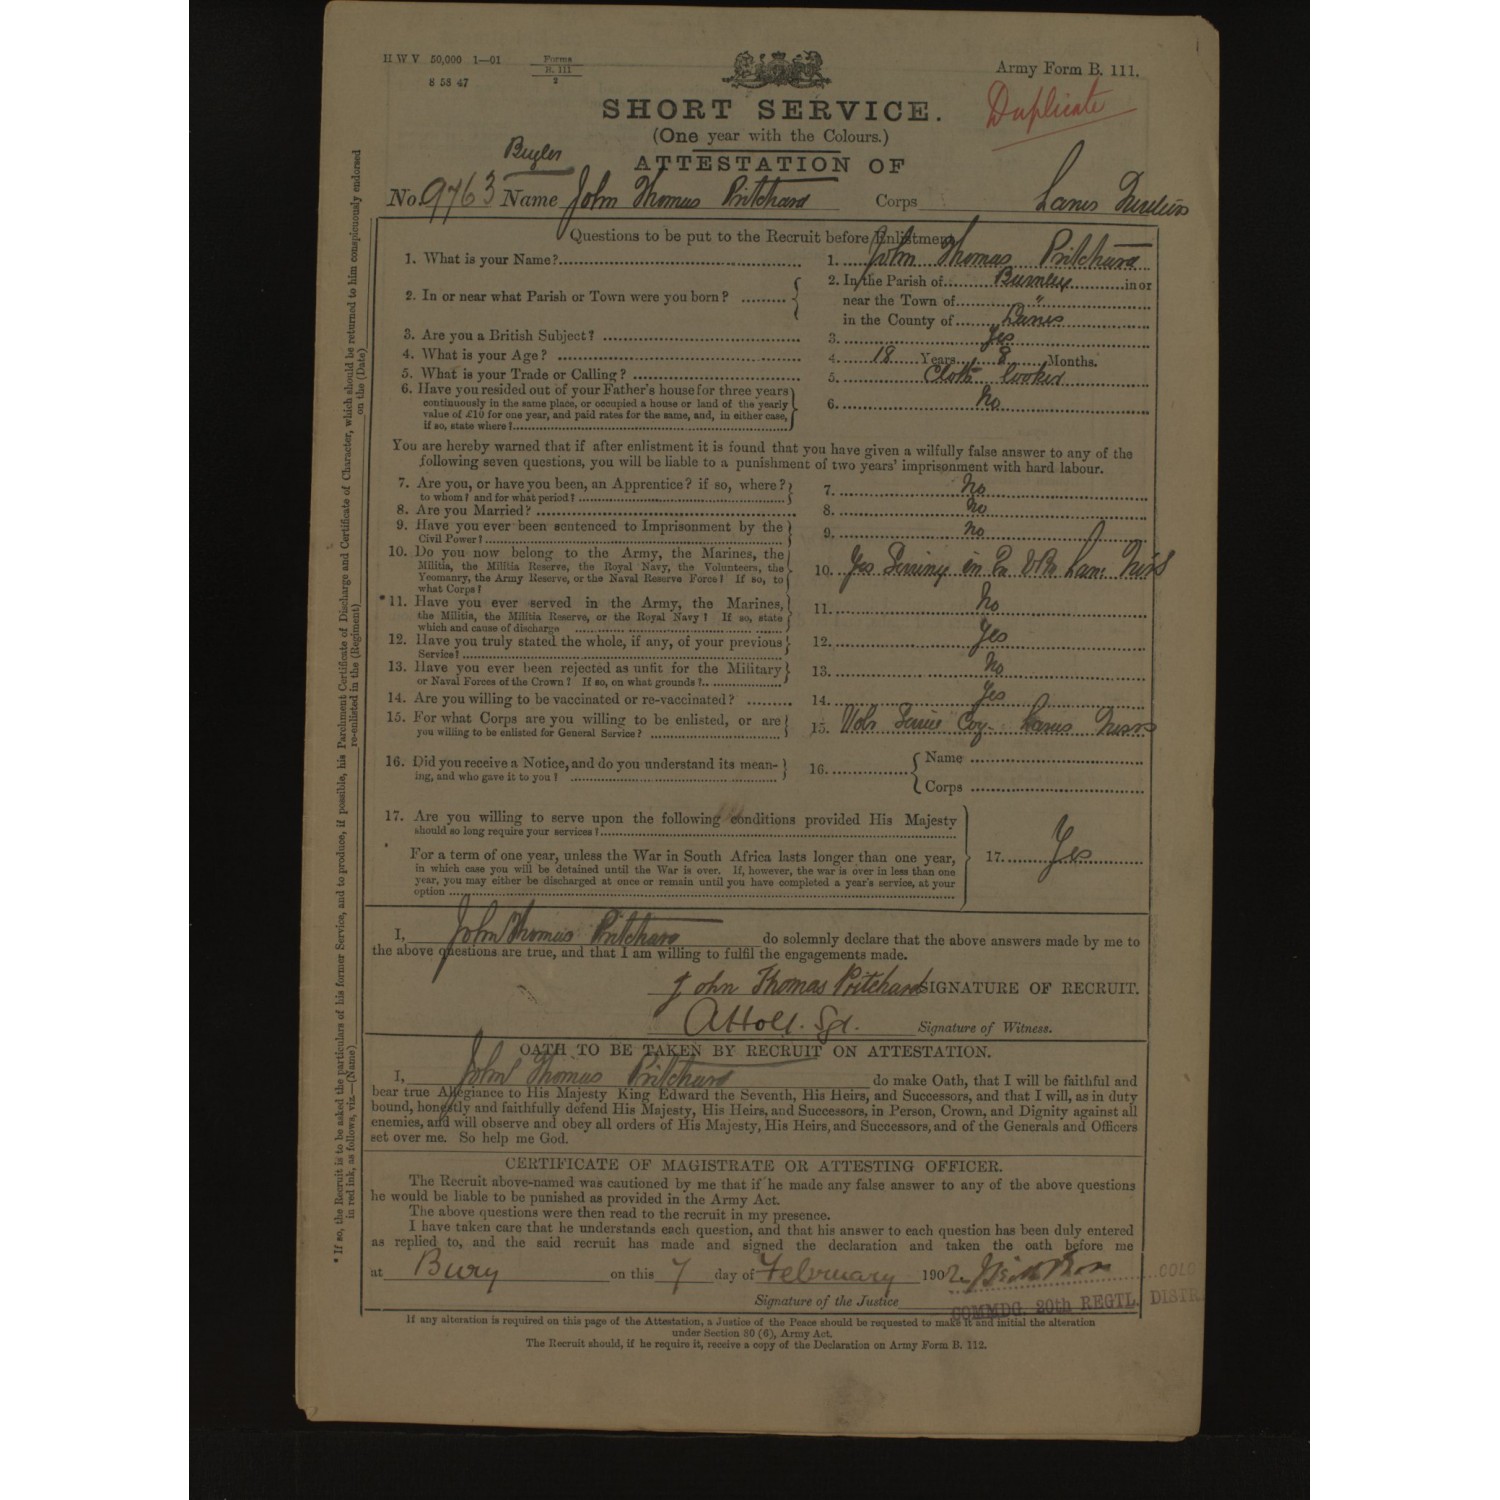 H W V 50,000 1—01
Forms
B. 111
2
8 58 47
Army Form B. 111.
Duplicate
SHORT SERVICE.
(One year with the Colours.)
Bugler
ATTESTATION OF
No. 9763 Name John Thomas Pritchard Corps Lancs
Questions to be put to the Recruit before Enlistment.
1. What is your Name? 1. John Thomas Pritchard
2. In or near what Parish or Town were you born? 2. In the Parish of in or
near the Town of "
in the County of Lancs
3. Are you a British Subject? 3. Yes
4. What is your Age? 4. 18 Years 8 Months.
5. What is your Trade or Calling? 5. Cloth looker
6. Have you resided out of your Father's house for three years 6. No
continuously in the same place, or occupied a house or land of the yearly
value of £10 for one year, and paid rates for the same, and, in either case,
if so, state where?
You are hereby warned that if after enlistment it is found that you have given a wilfully false answer to any of the
following seven questions, you will be liable to a punishment of two years' imprisonment with hard labour.
7. Are you, or have you been, an Apprentice? if so, where? 7. No
to whom? and for what period?
8. Are you Married? 8. No
9. Have you ever been sentenced to Imprisonment by the 9. No
Civil Power?
10. Do you now belong to the Army, the Marines, the
Militia, the Militia Reserve, the Royal Navy, the Volunteers, the
Yeomanry, the Army Reserve, or the Naval Reserve Force? If so, to 10. Yes in
what Corps?
*11. Have you ever served in the Army, the Marines, 11. No
the Militia, the Militia Reserve, or the Royal Navy? If so, state
which and cause of discharge
12. Have you truly stated the whole, if any, of your previous 12. Yes
Service?
13. Have you ever been rejected as unfit for the Military 13. No
or Naval Forces of the Crown? If so, on what grounds?
14. Are you willing to be vaccinated or re-vaccinated? 14. Yes
15. For what Corps are you willing to be enlisted, or are 15. Coy Lancs
you willing to be enlisted for General Service?
16. Did you receive a Notice, and do you understand its mean- 16. Name
ing, and who gave it to you? Corps
17. Are you willing to serve upon the following conditions provided His Majesty
should so long require your services?
For a term of one year, unless the War in South Africa lasts longer than one year, 17. Yes
in which case you will be detained until the War is over. If, however, the war is over in less than one
year, you may either be discharged at once or remain until you have completed a year's service, at your
option
I, John Thomas Pritchard do solemnly declare that the above answers made by me to
the above questions are true, and that I am willing to fulfil the engagements made.
John Thomas Pritchard SIGNATURE OF RECRUIT.
Signature of Witness.
OATH TO BE TAKEN BY RECRUIT ON ATTESTATION.
I, John Thomas Pritchard do make Oath, that I will be faithful and
bear true Allegiance to His Majesty King Edward the Seventh, His Heirs, and Successors, and that I will, as in duty
bound, honestly and faithfully defend His Majesty, His Heirs, and Successors, in Person, Crown, and Dignity against all
enemies, and will observe and obey all orders of His Majesty, His Heirs, and Successors, and of the Generals and Officers
set over me. So help me God.
CERTIFICATE OF MAGISTRATE OR ATTESTING OFFICER.
The Recruit above-named was cautioned by me that if he made any false answer to any of the above questions
he would be liable to be punished as provided in the Army Act.
The above questions were then read to the recruit in my presence.
I have taken care that he understands each question, and that his answer to each question has been duly entered
as replied to, and the said recruit has made and signed the declaration and taken the oath before me
at Bury on this 7 day of February 1902
Signature of the Justice
COMMDG. 20th REGTL. DISTR
If any alteration is required on this page of the Attestation, a Justice of the Peace should be requested to make it and initial the alteration
under Section 80 (6), Army Act.
The Recruit should, if he require it, receive a copy of the Declaration on Army Form B. 112.
* If so, the Recruit is to be asked the particulars of his former Service, and to produce, if possible, his Parchment Certificate of Discharge and Certificate of Character, which should be returned to him conspicuously endorsed
in red ink, as follows, viz.—(Name) re-enlisted in the (Regiment) on the (Date)